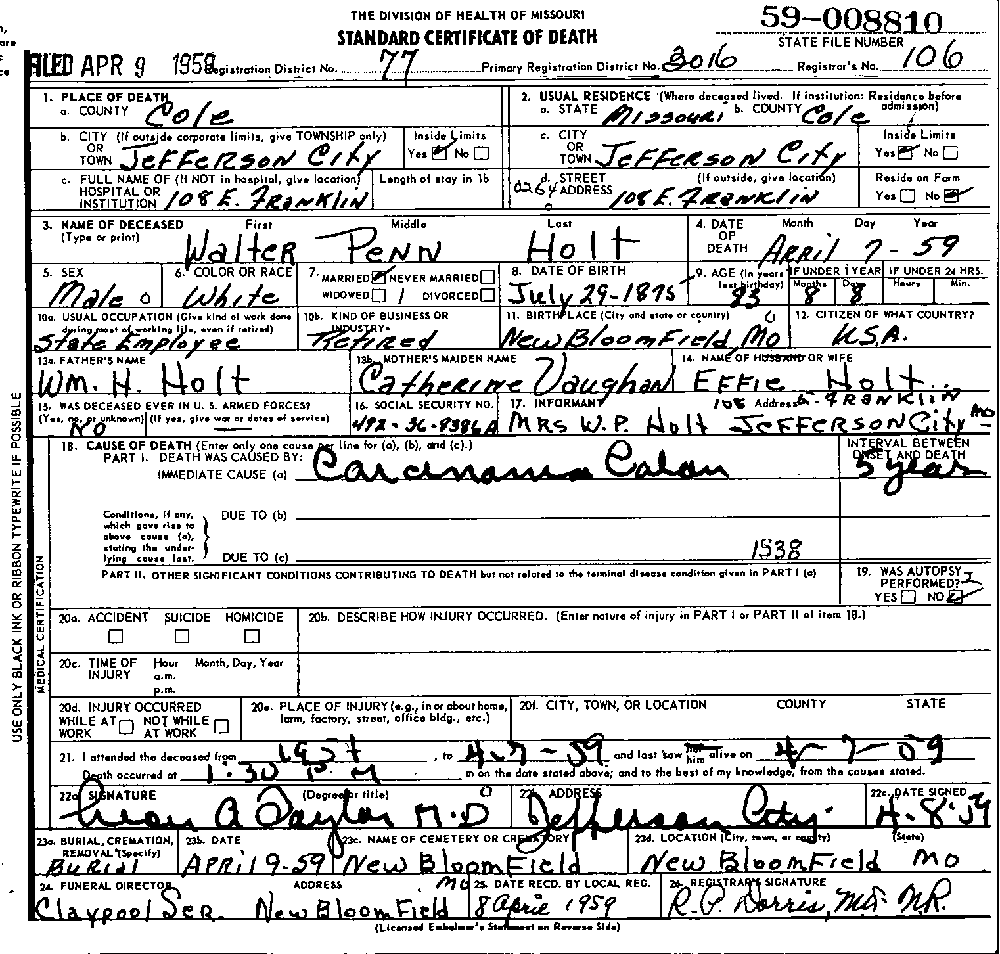 THE DIVISION OF HEALTH OF MISSOURI
STANDARD CERTIFICATE OF DEATH
59-008810
STATE FILE NUMBER
FILED APR 9 1959 Registration District No. 77 Primary Registration District No. 3016 Registrar's No. 106
1. PLACE OF DEATH
a. COUNTY Cole
2. USUAL RESIDENCE (Where deceased lived. If institution: Residence before admission)
a. STATE Missouri b. COUNTY Cole
b. CITY (If outside corporate limits, give TOWNSHIP only)
OR
TOWN Jefferson City
Inside Limits
Yes No
c. CITY
OR
TOWN Jefferson City
Inside Limits
Yes No
c. FULL NAME OF (If NOT in hospital, give location)
HOSPITAL OR
INSTITUTION 108 E. Franklin
Length of stay in 1b
0264
d. STREET (If outside, give location)
ADDRESS 108 E. Franklin
Reside on Farm
Yes No
3. NAME OF DECEASED First Middle Last
(Type or print) Walter Penn Holt
4. DATE Month Day Year
OF
DEATH April 7-59
5. SEX
Male
6. COLOR OR RACE
White
7. MARRIED NEVER MARRIED
WIDOWED DIVORCED
8. DATE OF BIRTH
July 29-1875
9. AGE (In years last birthday)
83
IF UNDER 1 YEAR
Months 8 Days 8
IF UNDER 24 HRS.
Hours Min.
10a. USUAL OCCUPATION (Give kind of work done
during most of working life, even if retired)
State Employee
10b. KIND OF BUSINESS OR
INDUSTRY
Retired
11. BIRTHPLACE (City and state or country)
New Bloomfield, Mo
12. CITIZEN OF WHAT COUNTRY?
U.S.A.
13a. FATHER'S NAME
Wm. H. Holt
13b. MOTHER'S MAIDEN NAME
Catherine Vaughan
14. NAME OF HUSBAND OR WIFE
Effie Holt
15. WAS DECEASED EVER IN U. S. ARMED FORCES?
(Yes, no, or unknown) (If yes, give war or dates of service)
No
16. SOCIAL SECURITY NO.
492-36-8386A
17. INFORMANT Address
108 E. Franklin
Mrs W.P. Holt Jefferson City Mo
18. CAUSE OF DEATH (Enter only one cause per line for (a), (b), and (c).)
PART I. DEATH WAS CAUSED BY:
IMMEDIATE CAUSE (a) Carcinoma Colon
INTERVAL BETWEEN
ONSET AND DEATH
5 years
Conditions, if any,
which gave rise to
above cause (a),
stating the under-
lying cause last.
DUE TO (b)
DUE TO (c) 1538
PART II. OTHER SIGNIFICANT CONDITIONS CONTRIBUTING TO DEATH but not related to the terminal disease condition given in PART I (a)
19. WAS AUTOPSY
PERFORMED?
YES NO
20a. ACCIDENT SUICIDE HOMICIDE
20b. DESCRIBE HOW INJURY OCCURRED. (Enter nature of injury in PART I or PART II of item 18.)
20c. TIME OF INJURY Hour Month, Day, Year
a.m.
p.m.
20d. INJURY OCCURRED
WHILE AT WORK NOT WHILE AT WORK
20e. PLACE OF INJURY (e.g., in or about home,
farm, factory, street, office bldg., etc.)
20f. CITY, TOWN, OR LOCATION COUNTY STATE
21. I attended the deceased from , to 4-7-59 and last saw him alive on 4-7-59
Death occurred at 1:30 P M m on the date stated above; and to the best of my knowledge, from the causes stated.
22a. SIGNATURE (Degree or title)
A Taylor M.D
22b. ADDRESS
Jefferson City
22c. DATE SIGNED
4-8-59
23a. BURIAL, CREMATION,
REMOVAL (Specify)
Burial
23b. DATE
April 9-59
23c. NAME OF CEMETERY OR CREMATORY
New Bloomfield
23d. LOCATION (City, town, or county) (State)
New Bloomfield Mo
24. FUNERAL DIRECTOR ADDRESS
Claypool Ser. New Bloomfield Mo
25. DATE RECD. BY LOCAL REG.
8 April 1959
26. REGISTRAR'S SIGNATURE
R.P. Dorris, M.D. M.R.
(Licensed Embalmer's Statement on Reverse Side)
USE ONLY BLACK INK OR RIBBON TYPEWRITE IF POSSIBLE
MEDICAL CERTIFICATION